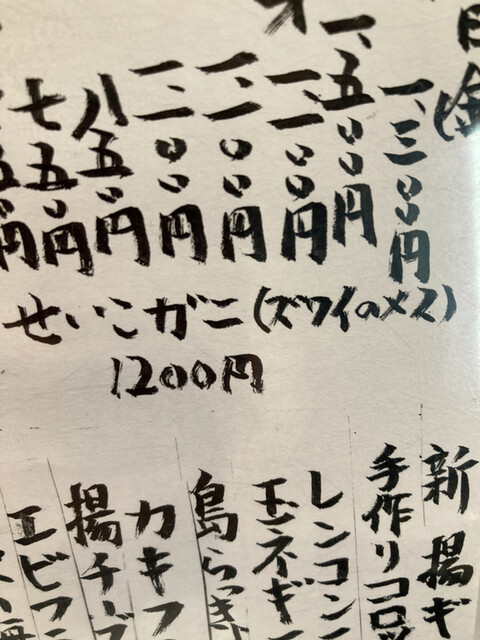 日(金
一、三〇〇円
一、五〇〇円
一、一〇〇円
一、一〇〇円
一、一〇〇円
八五〇円
七五〇円
五〇円
せいこガニ(ズワイのメス)
1200円
新 揚ギ
手作りコロッ
レンコン
玉ネギ
島らっき
カキフ
揚チーズ
エビフ